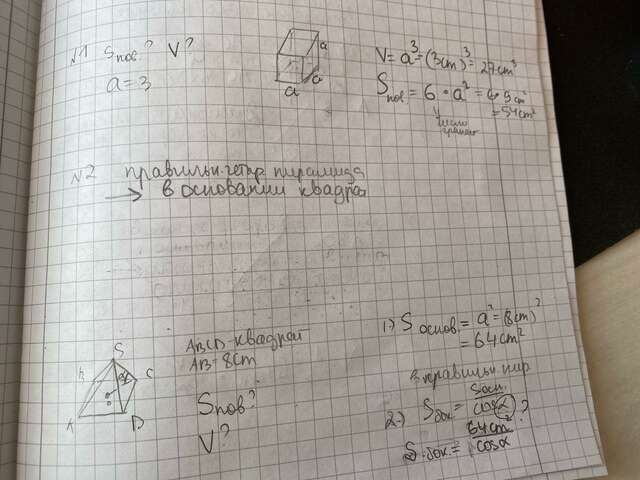 N1 Sпов? V?
a=3
a
a
a
V = a³ = (3cm)³ = 27cm³
Sпов = 6 · a² = 6·9cm²
= 54cm²
число
граней
N2 правильн. четыр пирамида
→ в основании квадрат
S
B
C
A
D
α
ABCD-квадрат
AB=8cm
Sпов?
V?
1.) S основ. = a² = (8cm)²
= 64cm²
В правильн пир
2.) Sбок = Sосн. / cos α ?
Sбок = 64cm² / cosα